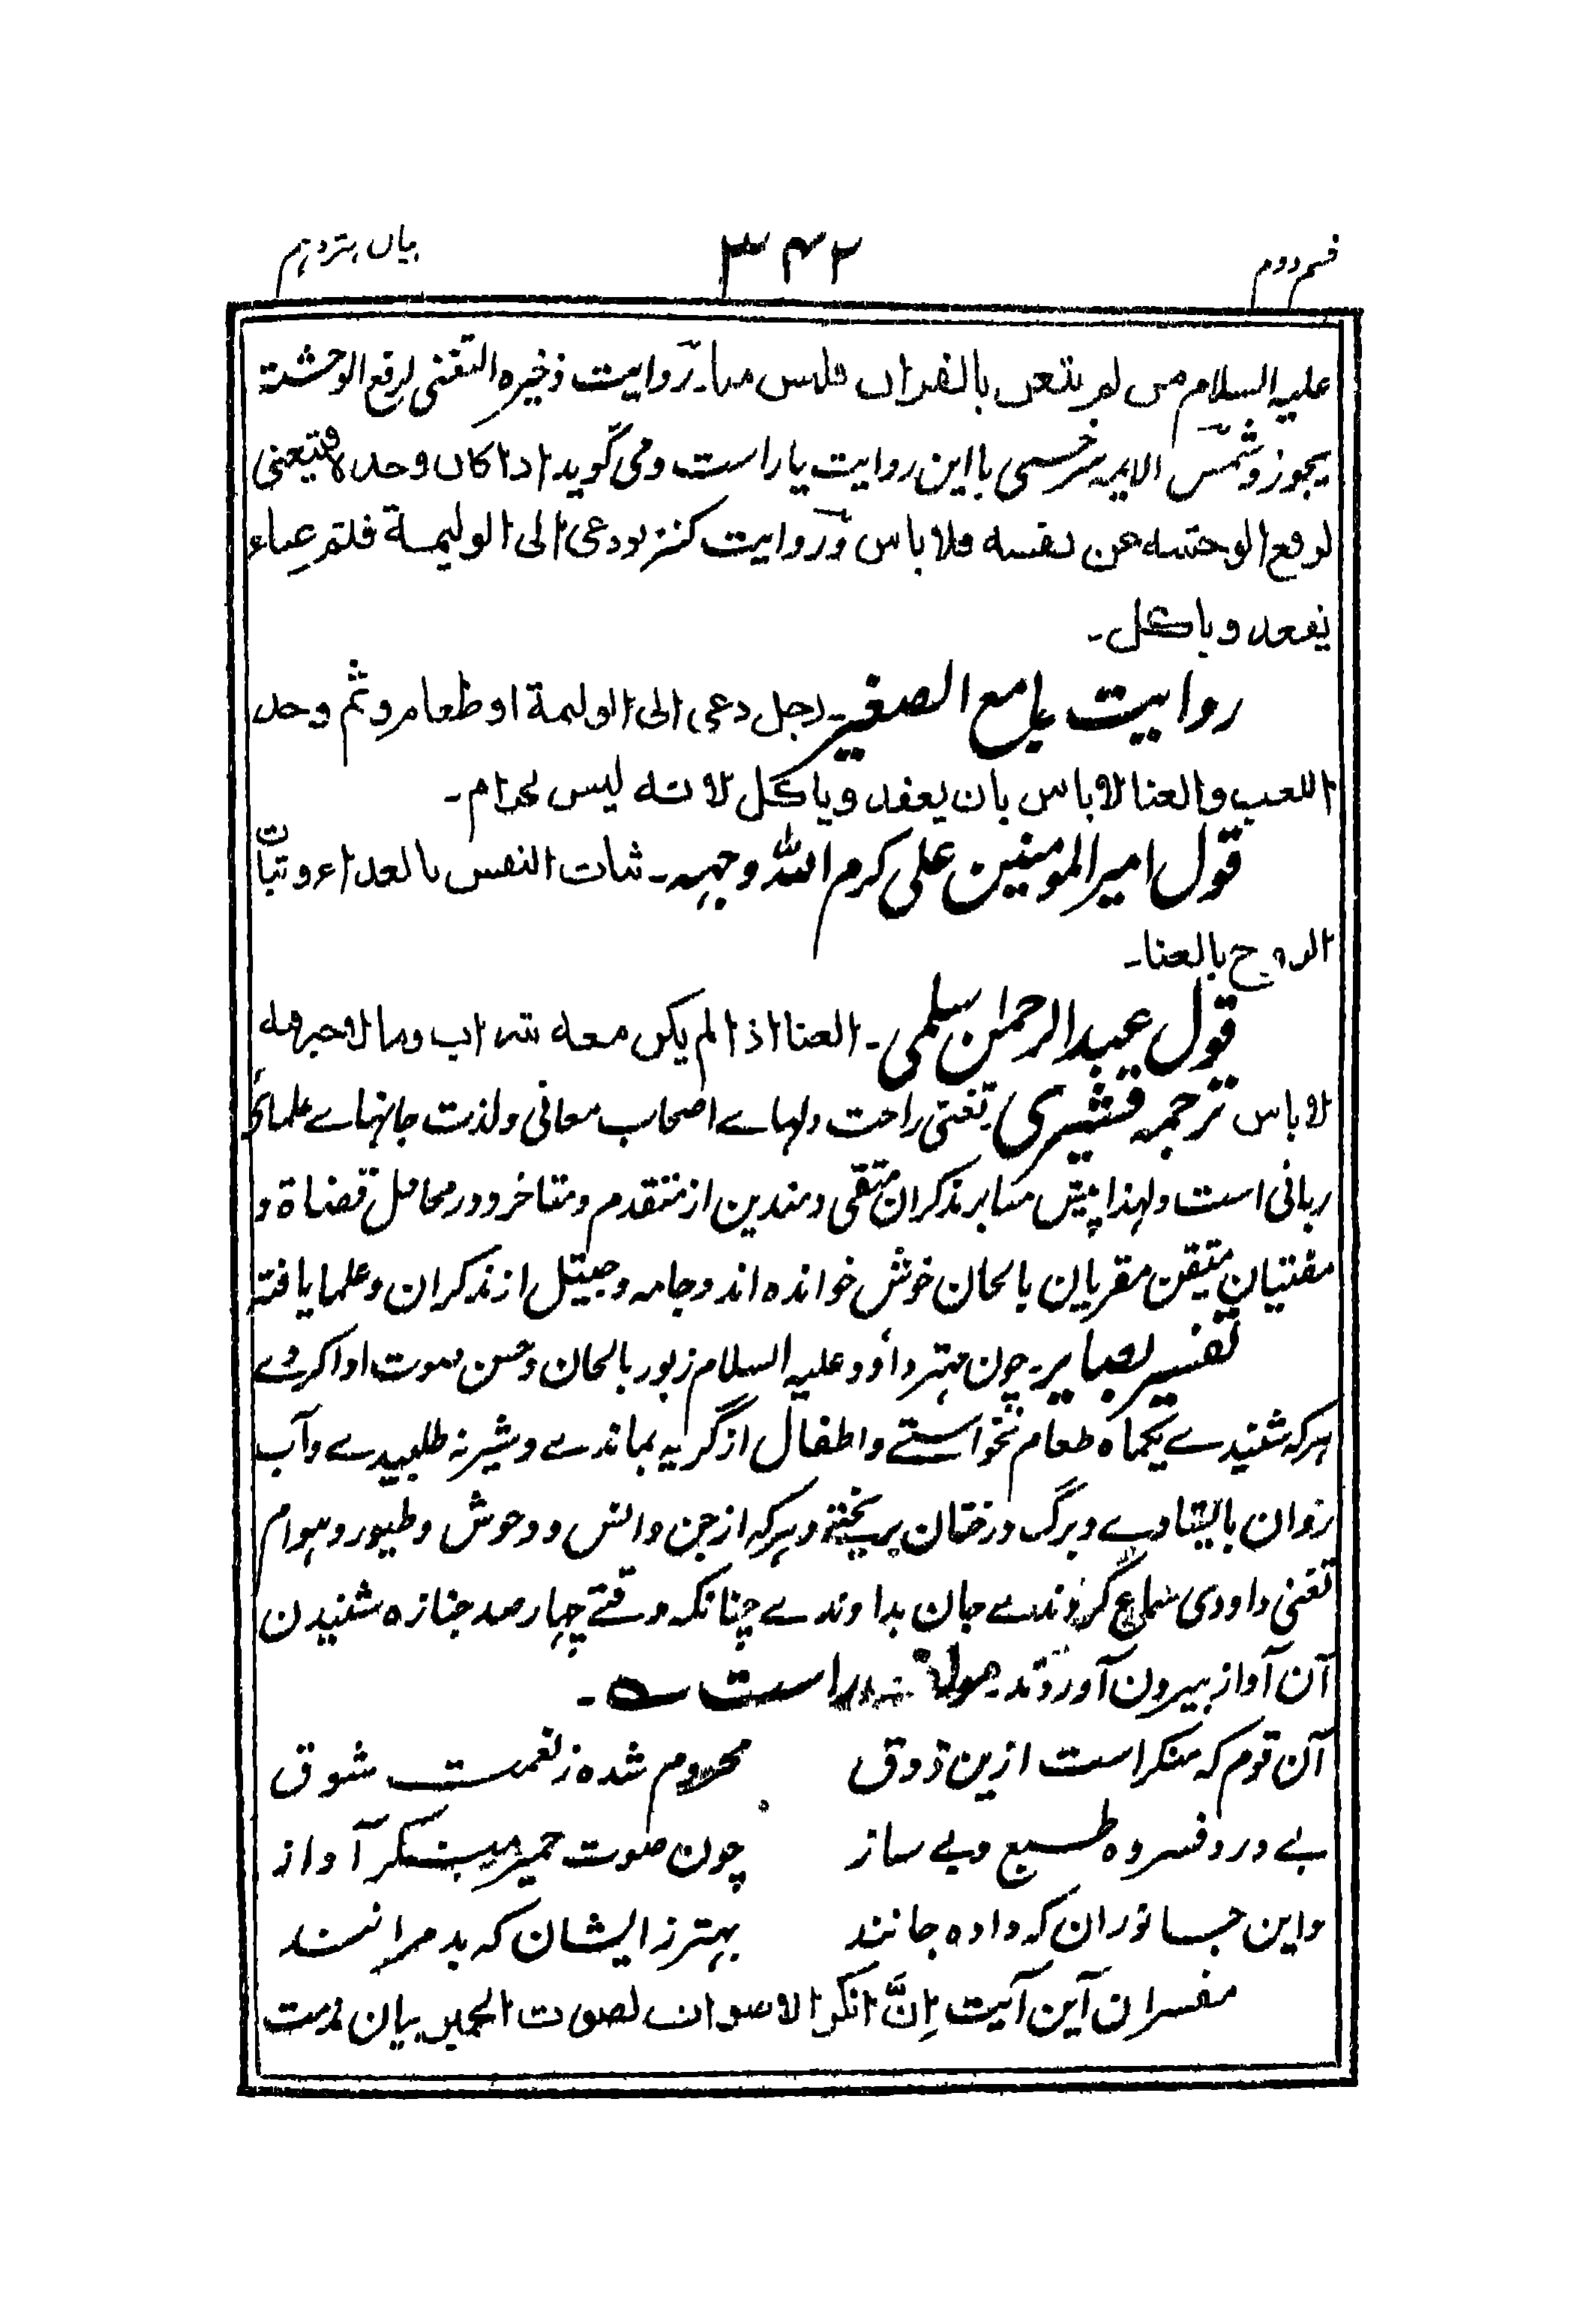 قسم دوم ۳۴۲ بیان ہژدہم
علیہ السلام من لم یتغن بالقران فلیس منا۔ روایت ذخیرہ التغنی لرفع الوحشة
یجوز و شمس الایمہ سرخسی با این روایت یار است و می گوید اذا کان وحدہ فتیغنی
لرفع الوحشه عن نفسه فلا باس و روایت کنز ودعی الی الولیمة فلم غناء
یقعد ویاکل۔
روایت جامع الصغیر۔ رجل دعی الی الولیمة او طعام وثم وجد
اللعب والغنا لا باس بان یعقد ویاکل لا نه لیس بحرام۔
قول امیر المومنین علی کرم اللہ وجہہ۔ ثبات النفس بالغداء وثبات
الروح بالغنا۔
قول عبدالرحمٰن سلمی۔ الغنا اذا لم یکن معه شراب وما لا
لا باس ترجمہ قشیری۔ تغنی راحت دلہاے اصحاب معانی و لذت جانہاے علماے
ربانی است ولہذا پیش منابر مذکران متقی ومتدین از متقدم و متاخر و در محافل قضاة و
مفتیان متیقن مقریان بالحان خوش خواندہ اند و جامہ و جیتل از مذکران و علما یافتہ
تفسیر بصایر۔ چون مہتر داؤد علیہ السلام زبور بالحان وحسن صوت ادا کردے
ہرکہ شنیدے یکماہ طعام نخواستے و اطفال از گریہ بماندے و شیر نہ طلبیدے و آب
روان بایستادے و برگ درختان بریختے و ہرکہ از جن و انس و وحوش و طیور و ہوام
تغنی داودی سماع کردندے جان بداوندے چنانکہ وقتے چہار صد جنازہ شنیدن
آن آواز بیرون آوردند۔ راست ے۔
آن قوم کہ منکر است ازین ذوق محروم شدہ ز نعمت شوق
بے درد و فسردہ طبع و بے ساز چون صوت حمیر منکر آواز
و این جانوران کہ دادہ جانند بہتر ز ایشان کہ بد مرانند
مفسران آین آیت اِنَّ انکر الاصوات لصوت الحمیر بیان